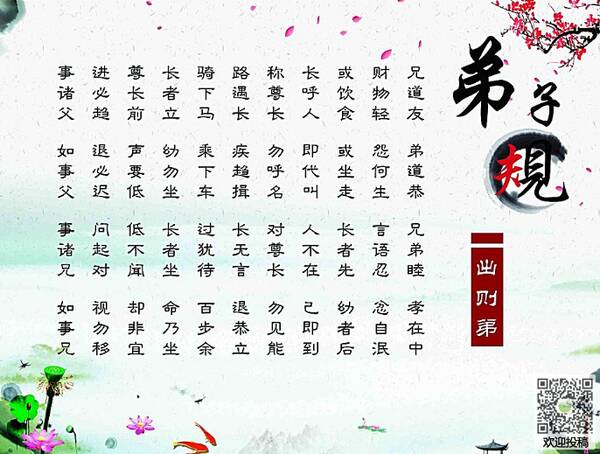 弟子規
出则弟
兄道友 弟道恭 兄弟睦 孝在中
财物轻 怨何生 言语忍 忿自泯
或饮食 或坐走 长者先 幼者后
长呼人 即代叫 人不在 己即到
称尊长 勿呼名 对尊长 勿见能
路遇长 疾趋揖 长无言 退恭立
骑下马 乘下车 过犹待 百步余
长者立 幼勿坐 长者坐 命乃坐
尊长前 声要低 低不闻 却非宜
进必趋 退必迟 问起对 视勿移
事诸父 如事父 事诸兄 如事兄
欢迎投稿